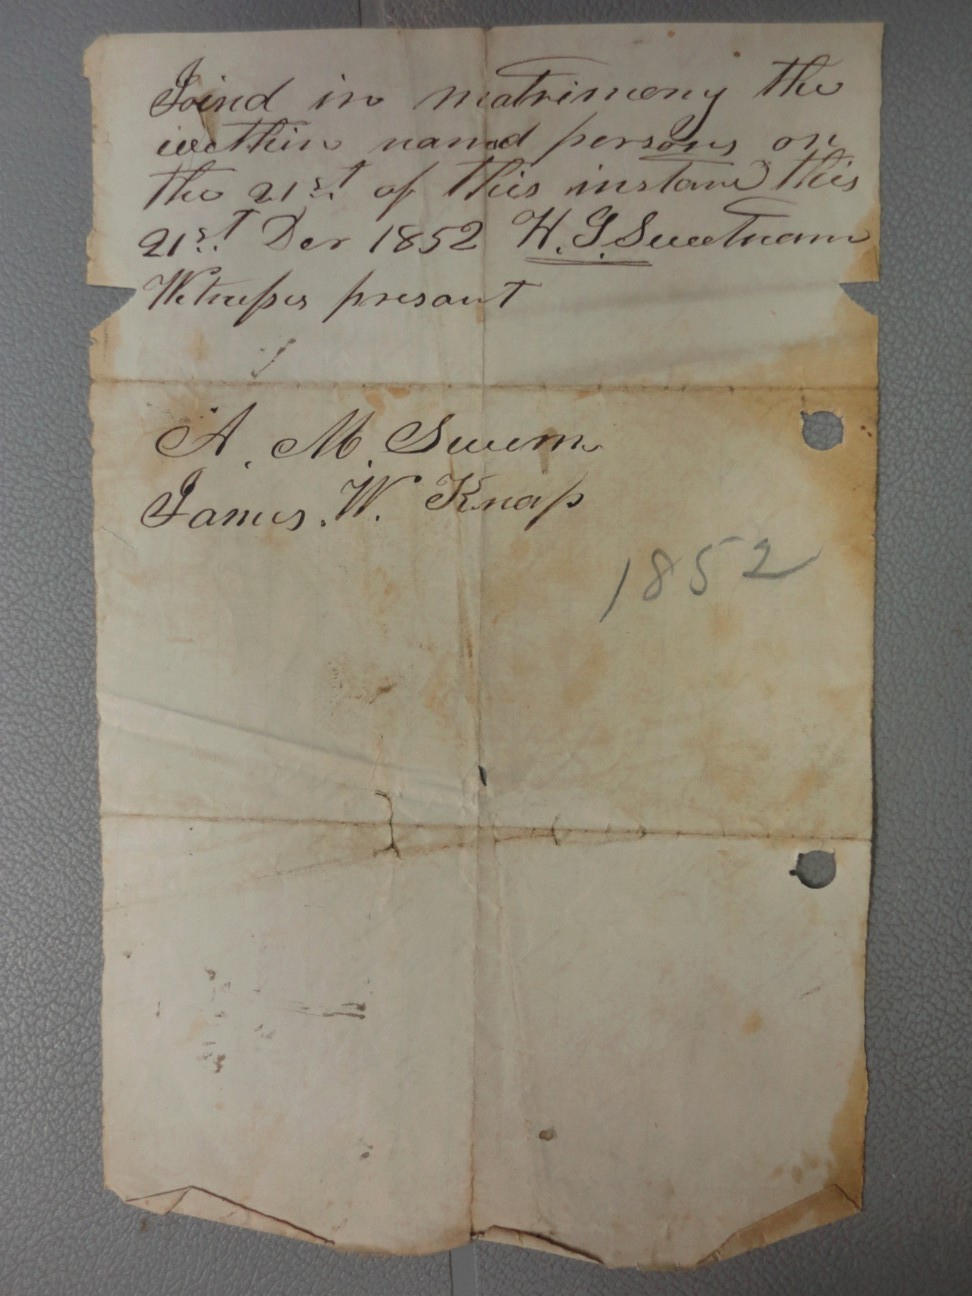 Joind in matrimony the
within namd persons on
the 21st of this instant this
21st Der 1852 H. G. Sweetnam
Witnesses presant
A. M. Swem
James. W. Knap
1852